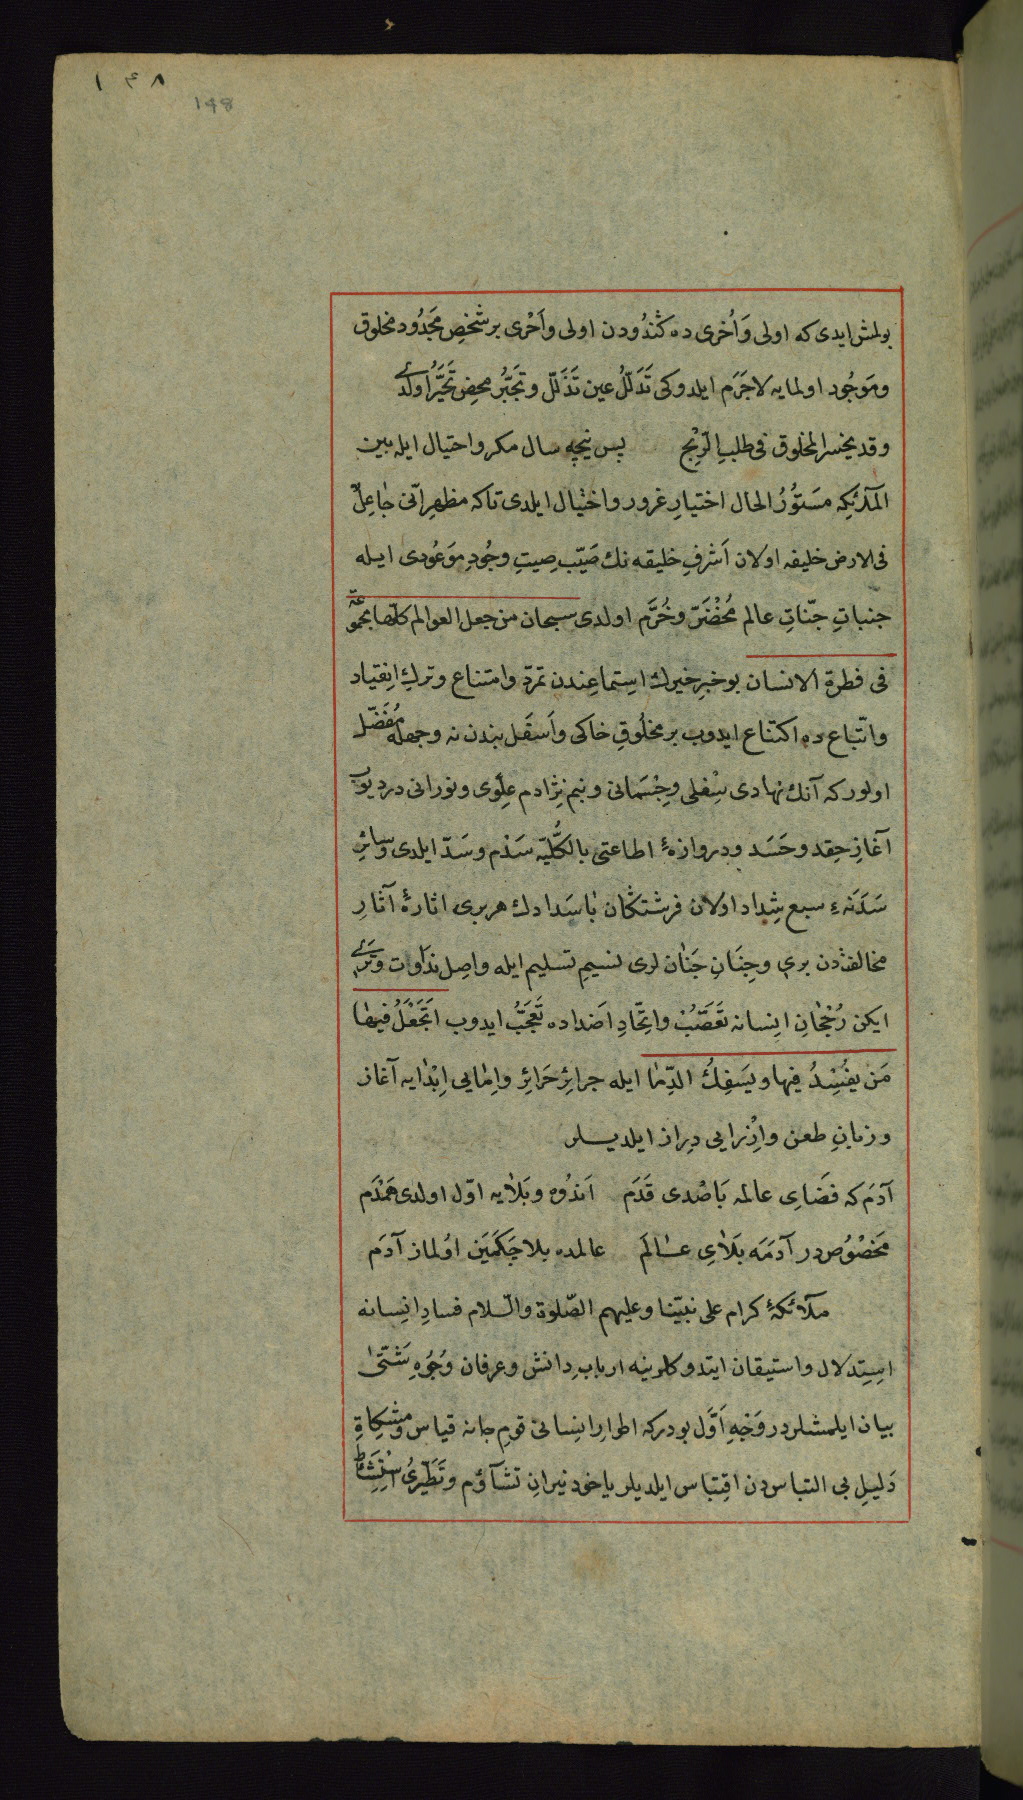 ١٤٨
148
بولمش ایدی که اولی وَاُخری ده کَنْدُودن اولی واَحْری بر شخصِ مَجْدُود مخلوق
ومَوجُود اولمایه لاجَرَم ایلدوکی تَدَلّلْ عین تَذَلّل وتجَبُّر محضِ تَحَیُّر اولدی
وقد یخسر المخلوق فی طلبِ الرِّبْحِ پس نیچه سال مکر واحتیال ایله بین
الملٓائِکه مسَتُورُ الحال اختیارِ غرور واختیال ایلدی تاکه مظهرِ اِنّی جٰاعِلٌ
فی الارض خلیفه اولان اَشرفِ خلیقه نك صَیّب صِیتِ وجُودِ موَعُودی ایله
جنباتِ جنّاتِ عالم مُخْضَرّ وخُرَّم اولدی سبحان من جعل العوالم کلّها مجموعة
فی فطرة الانسان بو خبرِ خیرك اِستماعِندن تمرّد وامتناع وترك اِنقیاد
واتّباع ده اکتناع ایدوب بر مخلُوقِ خاکی واَسفَل بندن نه وجهله مُفَضّل
اولور که آنك نهادی سِفلی وجِسْمَانی وبنم نِژادم علِوی ونورانی در دیوب
آغازِ حِقد وحَسَد ودروازهٔ اطاعتی بالکُلّیّه سَدْم وسَدّ ایلدی وسائرِ
سَدَنهٔ سبع شِداد اولان فرشتکان بٰاسَدادك هر بری اثارهٔ آثارِ
مخالفتدن بری وجِنَانِ جَنٰان لری نسیمِ تسلیم ایله واصِل نداوت وتری
ایکن رُجْحٰانِ اِنسانه تَعَصّبُ واتِّحادِ اَضداده تَعَجّبُ ایدوب اَتَجْعَلُ فیهٰا
مَن یفُسِدُ فیها ویسَفِكُ الدِّمٰا ایله جرائِر حَرائِر واِمٰایی اِبْدٰایه آغاز
وزبانِ طعن واِزْرایی دِراز ایلدیلر
آدَم که فضَایِ عالمه بَاصْدی قَدَم اَندُوه وبَلٰایه اوّل اولدی هَمْدَم
مَخصُوصدر آدمَه بَلٰایِ عٰالَم عالمده بلا چَکمَیَن اوُلماز آدَم
ملٓائکهٔ کرام علی نبیّنا وعلیهم الصّلوة والسّلام فسادِ اِنسانه
اسِتِدلال واستیقان ایتدوکلرینه اربابِ دانش وعرفان وجُوُهِ شَتّیٰ
بیان ایلمشلردر وَجْهِ اَوّل بودر که اطوارِ انِسانی قومِ جانه قیاس ومِشکاةِ
دَلیلِ بی التباسدن اقِتِباس ایلدیلر یاخود نیرانِ تشآؤم وتَطَیّریُ